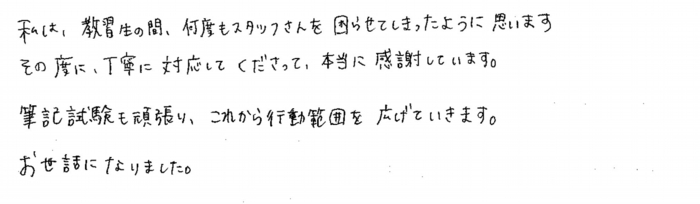 私は、教習生の間、何度もスタッフさんを困らせてしまったように思います
その度に、丁寧に対応してくださって、本当に感謝しています。
筆記試験も頑張り、これから行動範囲を広げていきます。
お世話になりました。